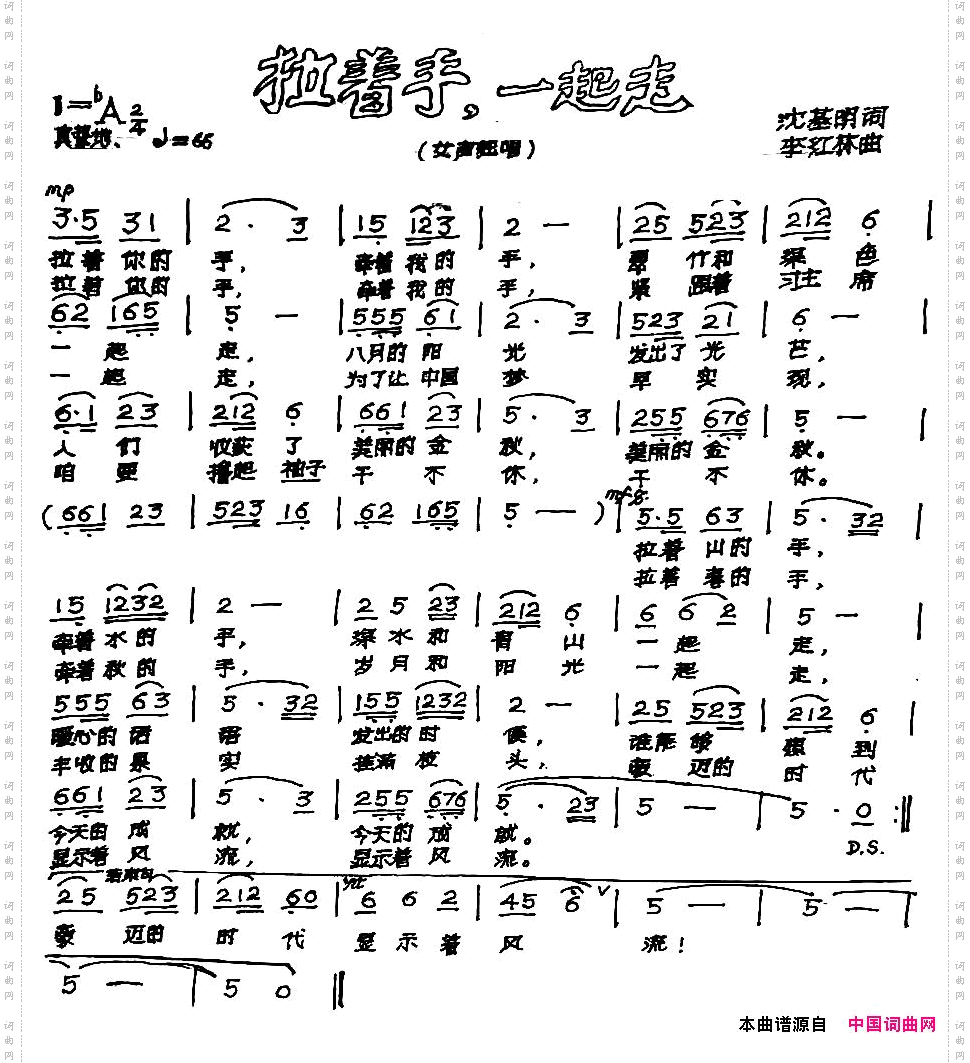 拉着手,一起走
1=♭A 2/4
♩=66
(女声独唱)
沈基明词
李红林曲
mp
3·5 31 | 2· 3 | 15 123 | 2 — | 25 523 | 212 6 |
拉着你的 手, 牵着我的 手, 翠竹和 深色
拉着你的 手, 牵着我的 手, 紧跟着 习主席
62 165 | 5 — | 555 61 | 2· 3 | 523 21 | 6 — |
一起 走, 八月的阳 光 发出了光 芒,
一起 走, 为了让中国 梦 早实 现,
6·1 23 | 212 6 | 661 23 | 5· 3 | 255 676 | 5 — |
人们 收获了 美丽的金 秋, 美丽的金 秋。
咱要 撸起袖子 干不 休, 干不 休。
(661 23 | 523 16 | 62 165 | 5 — —) | mf 5·5 63 | 5· 32 |
拉着山的 手,
拉着春的 手,
15 1232 | 2 — | 2 5 23 | 212 6 | 6 6 2 | 5 — |
牵着水的 手, 深水和 青山 一起 走,
牵着秋的 手, 岁月和 阳光 一起 走,
555 63 | 5· 32 | 155 1232 | 2 — | 25 523 | 212 6 |
暖心的话 语 发出的时 候, 谁能够 想到
丰收的果 实 挂满枝 头, 豪迈的 时代
661 23 | 5· 3 | 255 676 | 5· 23 | 5 — | 5· 0 :||
今天的成 就, 今天的成 就。 D.S.
显示着风 流, 显示着风 流。
结束句
25 523 | 212 60 | 6 6 2 | 45 6 ∨ | 5 — | 5 — |
豪迈的 时代 显示着 风 流!
5 — | 5 0 ||
本曲谱源自 中国词曲网
词曲网